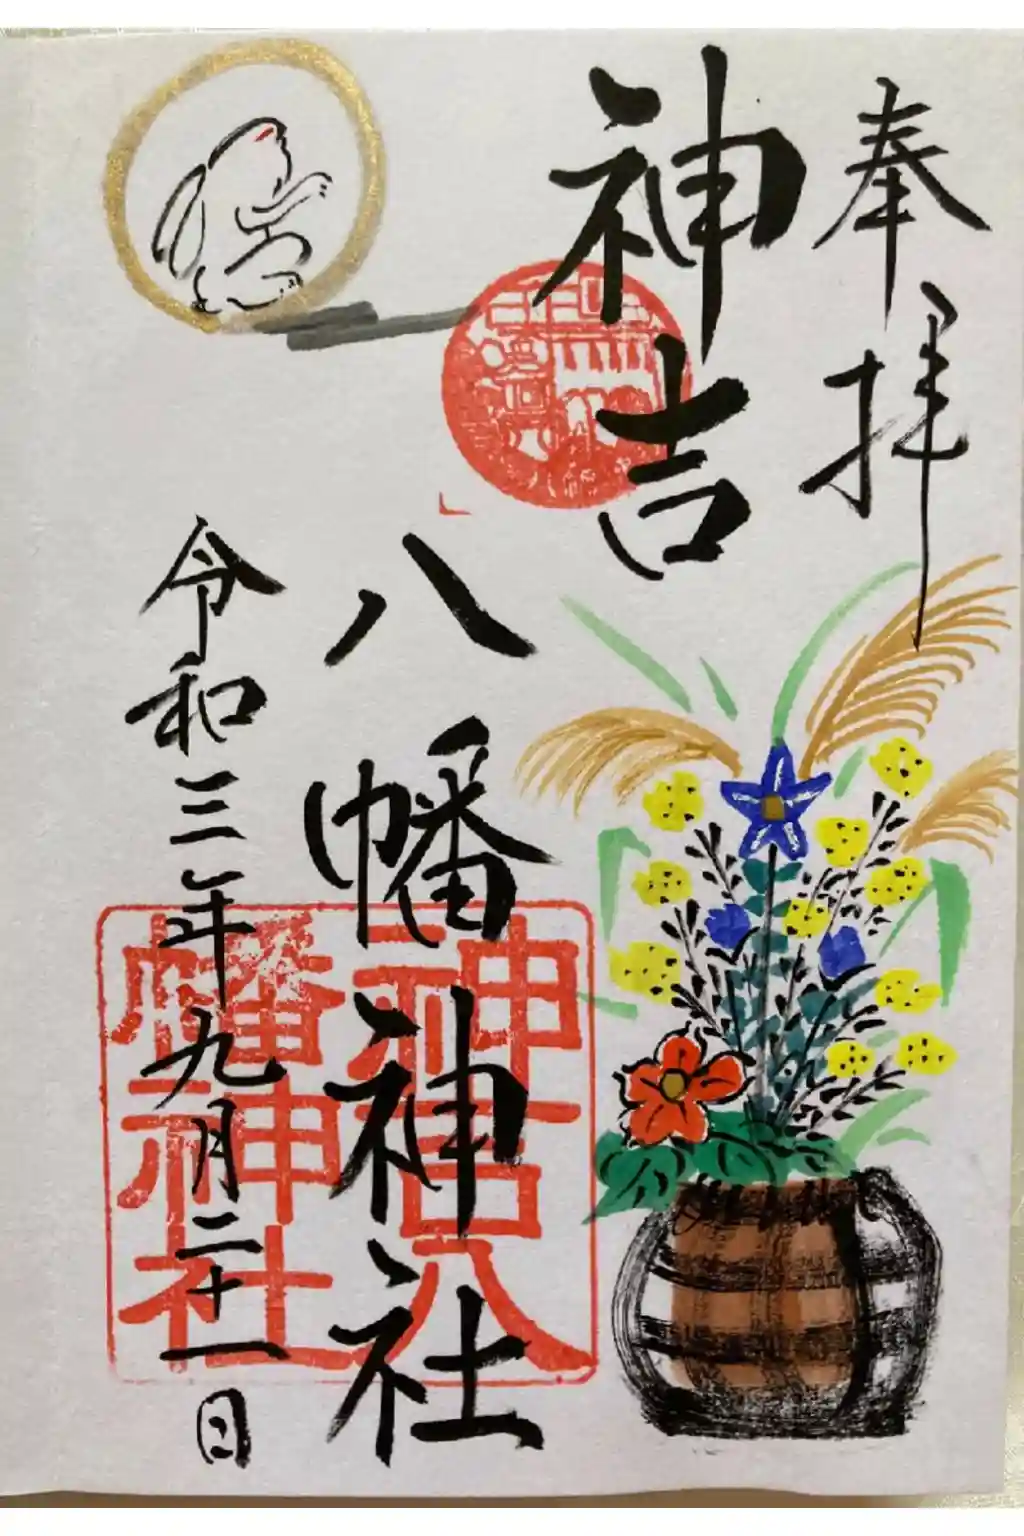 奉拝
神吉
八幡神社
令和三年九月二十一日
神吉八
幡神社